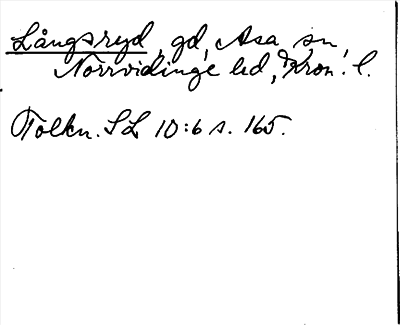 Långsryd, gd, Asa sn,
Norrvidinge hd, Kron. l.
Tolkn. SL 10:6 s. 165.